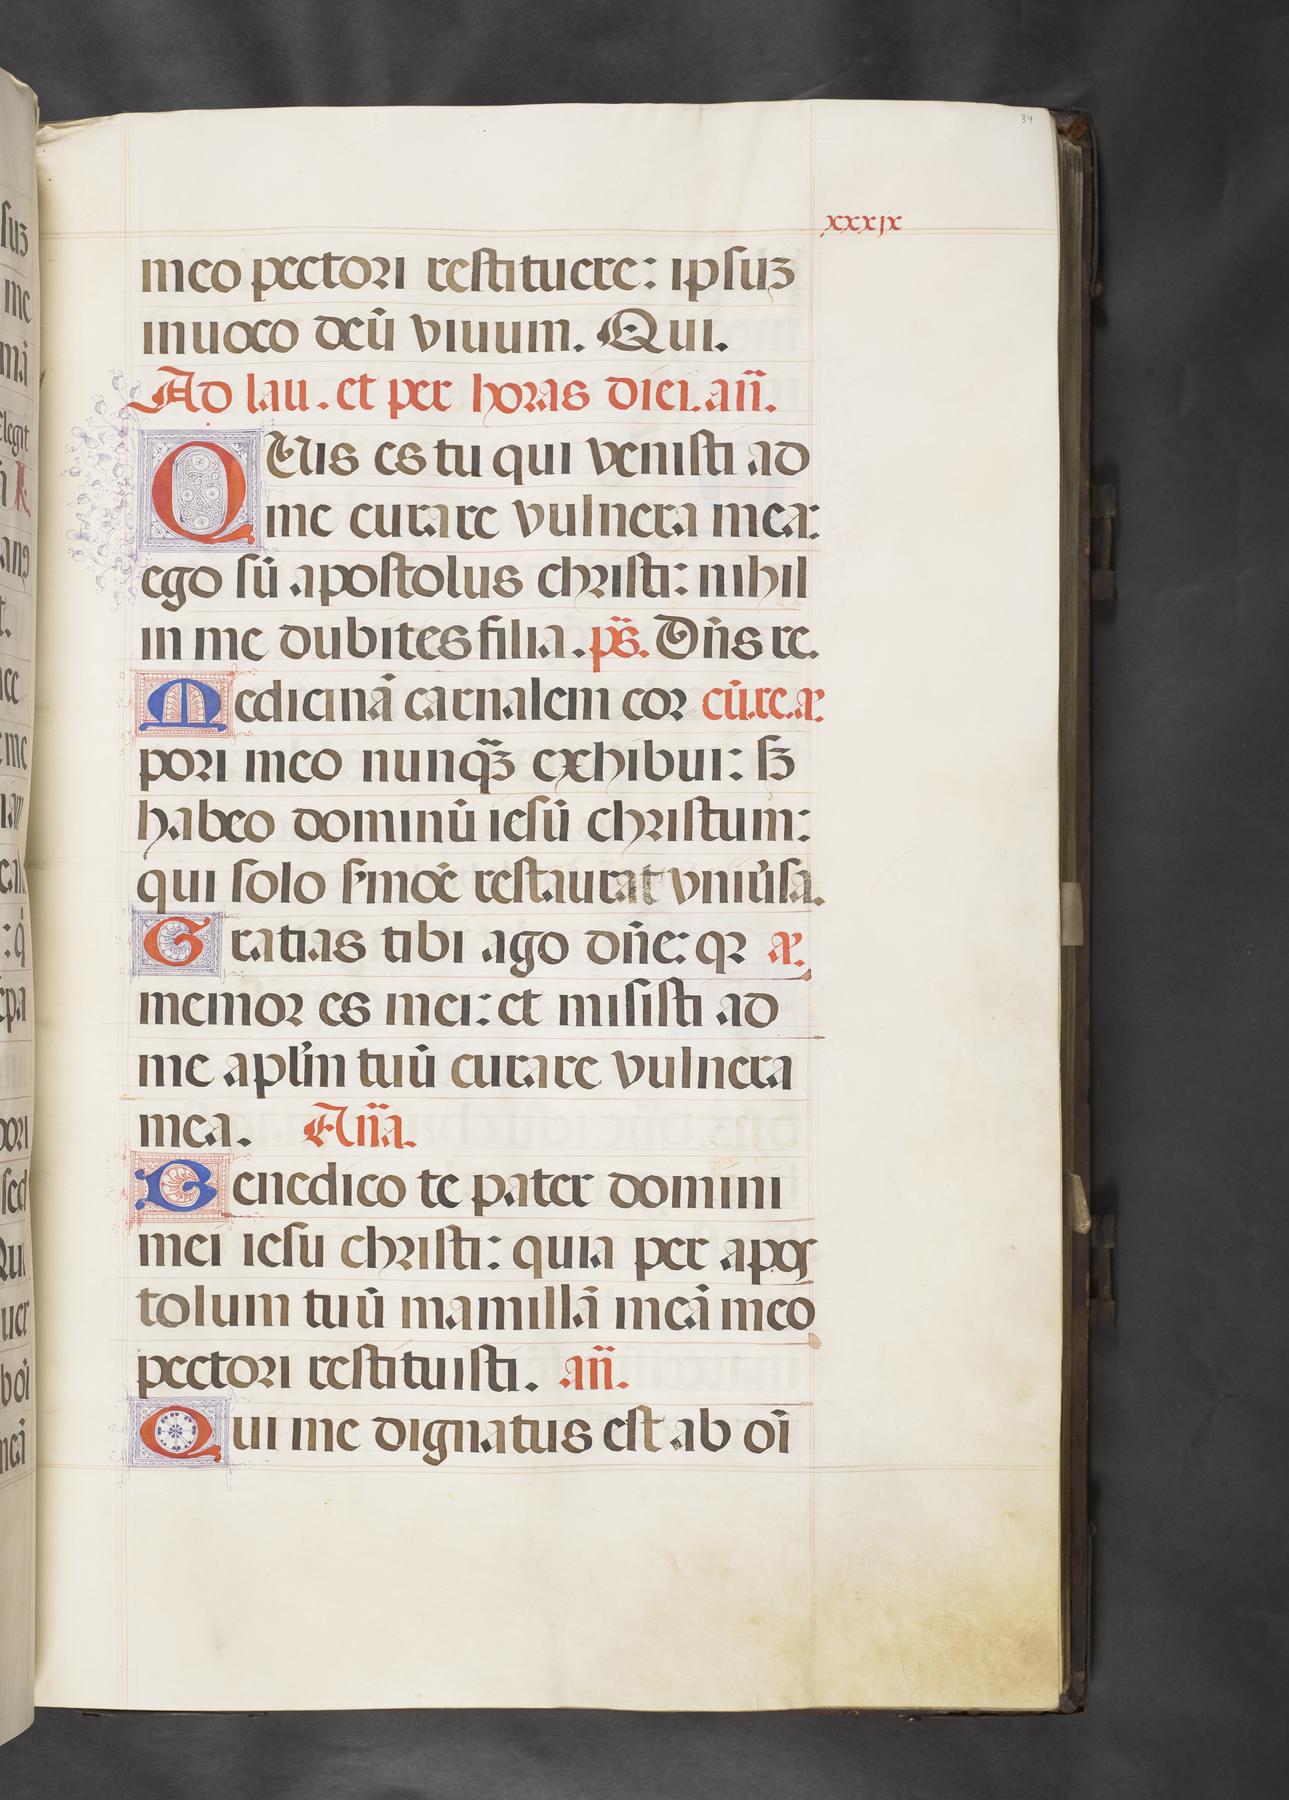 39
xxxjx
meo pectori restituere: ipsuꝫ
inuoco deū viuum. Qui.
Ad lau. et per horas diei. an̄.
QUis es tu qui venisti ad
me curare vulnera mea:
ego sū apostolus christi: nihil
in me dubites filia. pẜ. Dn̄s re.
Medicinā carnalem cor cū.re.æ
pori meo nunqꝫ̄ exhibui: sꝫ
habeo dominū iesū christum:
qui solo s̄mōe restaurat vniu̓sa.
Gratias tibi ago dn̄e: qꝛ æ.
memor es mei: et misisti ad
me apl̄m tuū curare vulnera
mea. An̄a.
Benedico te pater domini
mei iesu christi: quia per apos
tolum tuū mamillā meā meo
pectori restituisti. an̄.
Qui me dignatus est ab oī